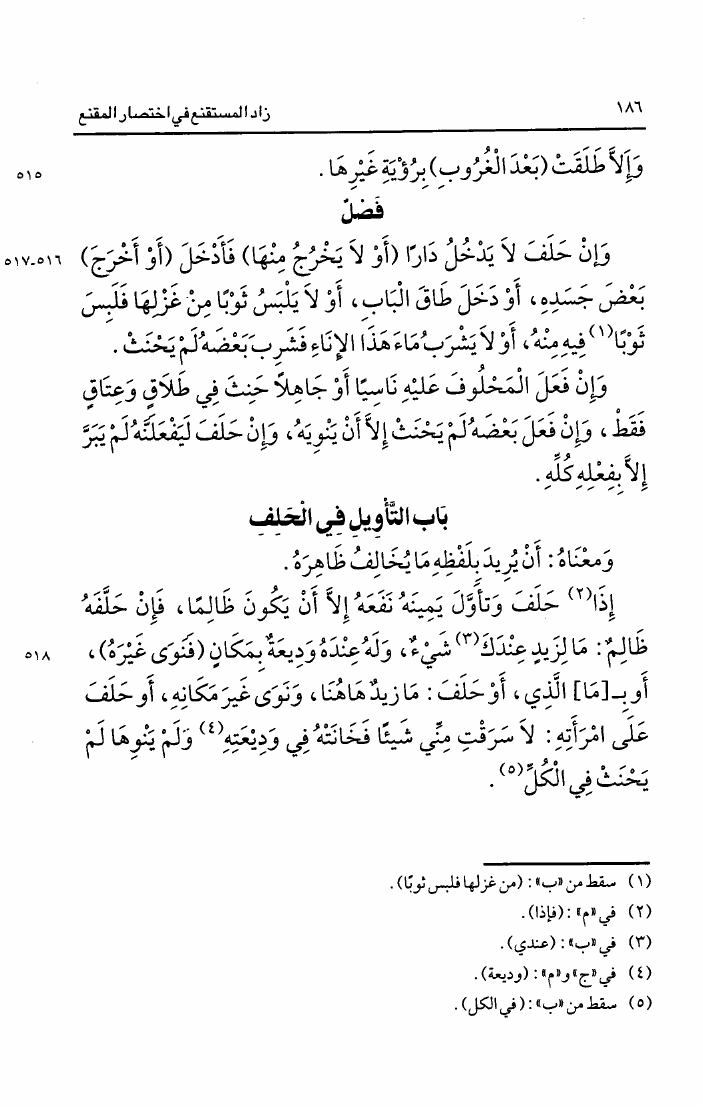 ١٨٦ زاد المستقنع في اختصار المقنع
وَإِلاَّ طَلَقَتْ (بَعْدَ الْغُرُوبِ) بِرُؤْيَةِ غَيْرِهَا. ٥١٥
فَصْلٌ
وَإِنْ حَلَفَ لاَ يَدْخُلُ دَارًا (أَوْ لاَ يَخْرُجُ مِنْهَا) فَأَدْخَلَ (أَوْ أَخْرَجَ) ٥١٦-٥١٧
بَعْضَ جَسَدِهِ، أَوْ دَخَلَ طَاقَ الْبَابِ، أَوْ لاَ يَلْبَسُ ثَوْبًا مِنْ غَزْلِهَا فَلَبِسَ
ثَوْبًا(١) فِيهِ مِنْهُ، أَوْ لاَ يَشْرَبُ مَاءَ هَذَا الإِنَاءِ فَشَرِبَ بَعْضَهُ لَمْ يَحْنَثْ.
وَإِنْ فَعَلَ الْمَحْلُوفَ عَلَيْهِ نَاسِيًا أَوْ جَاهِلاً حَنِثَ فِي طَلاَقٍ وَعِتَاقٍ
فَقَطْ، وَإِنْ فَعَلَ بَعْضَهُ لَمْ يَحْنَثْ إِلاَّ أَنْ يَنْوِيَهُ، وَإِنْ حَلَفَ لَيَفْعَلَنَّهُ لَمْ يَبَرَّ
إِلاَّ بِفِعْلِهِ كُلِّهِ.
بَاب التَّأْوِيلِ فِي الْحَلِفِ
وَمعْنَاهُ: أَنْ يُرِيدَ بِلَفْظِهِ مَا يُخَالِفُ ظَاهِرَهُ.
إِذَا(٢) حَلَفَ وَتَأَوَّلَ يَمِينَهُ نَفَعَهُ إِلاَّ أَنْ يَكُونَ ظَالِمًا، فَإِنْ حَلَّفَهُ
ظَالِمٌ: مَا لِزَيدٍ عِنْدَكَ(٣) شَيْءٌ، وَلَهُ عِنْدَهُ وَدِيعَةٌ بِمَكَانٍ (فَنَوَى غَيْرَهُ)، ٥١٨
أَو بِـ[مَا] الَّذِي، أَوْ حَلَفَ: مَا زيدٌ هَاهُنَا، وَنَوَى غَيرَ مَكَانِهِ، أَو حَلَفَ
عَلَى امْرَأَتِهِ: لاَ سَرَقْتِ مِنِّي شَيئًا فَخَانَتْهُ فِي وَدِيْعَتِهِ(٤) وَلَمْ يَنْوِهَا لَمْ
يَحْنَثْ فِي الْكُلِّ(٥).
(١) سقط من «ب»: (من غزلها فلبس ثوبًا).
(٢) في «م»: (فإذا).
(٣) في «ب»: (عندي).
(٤) في «ج» و«م»: (وديعة).
(٥) سقط من «ب»: (في الكل).